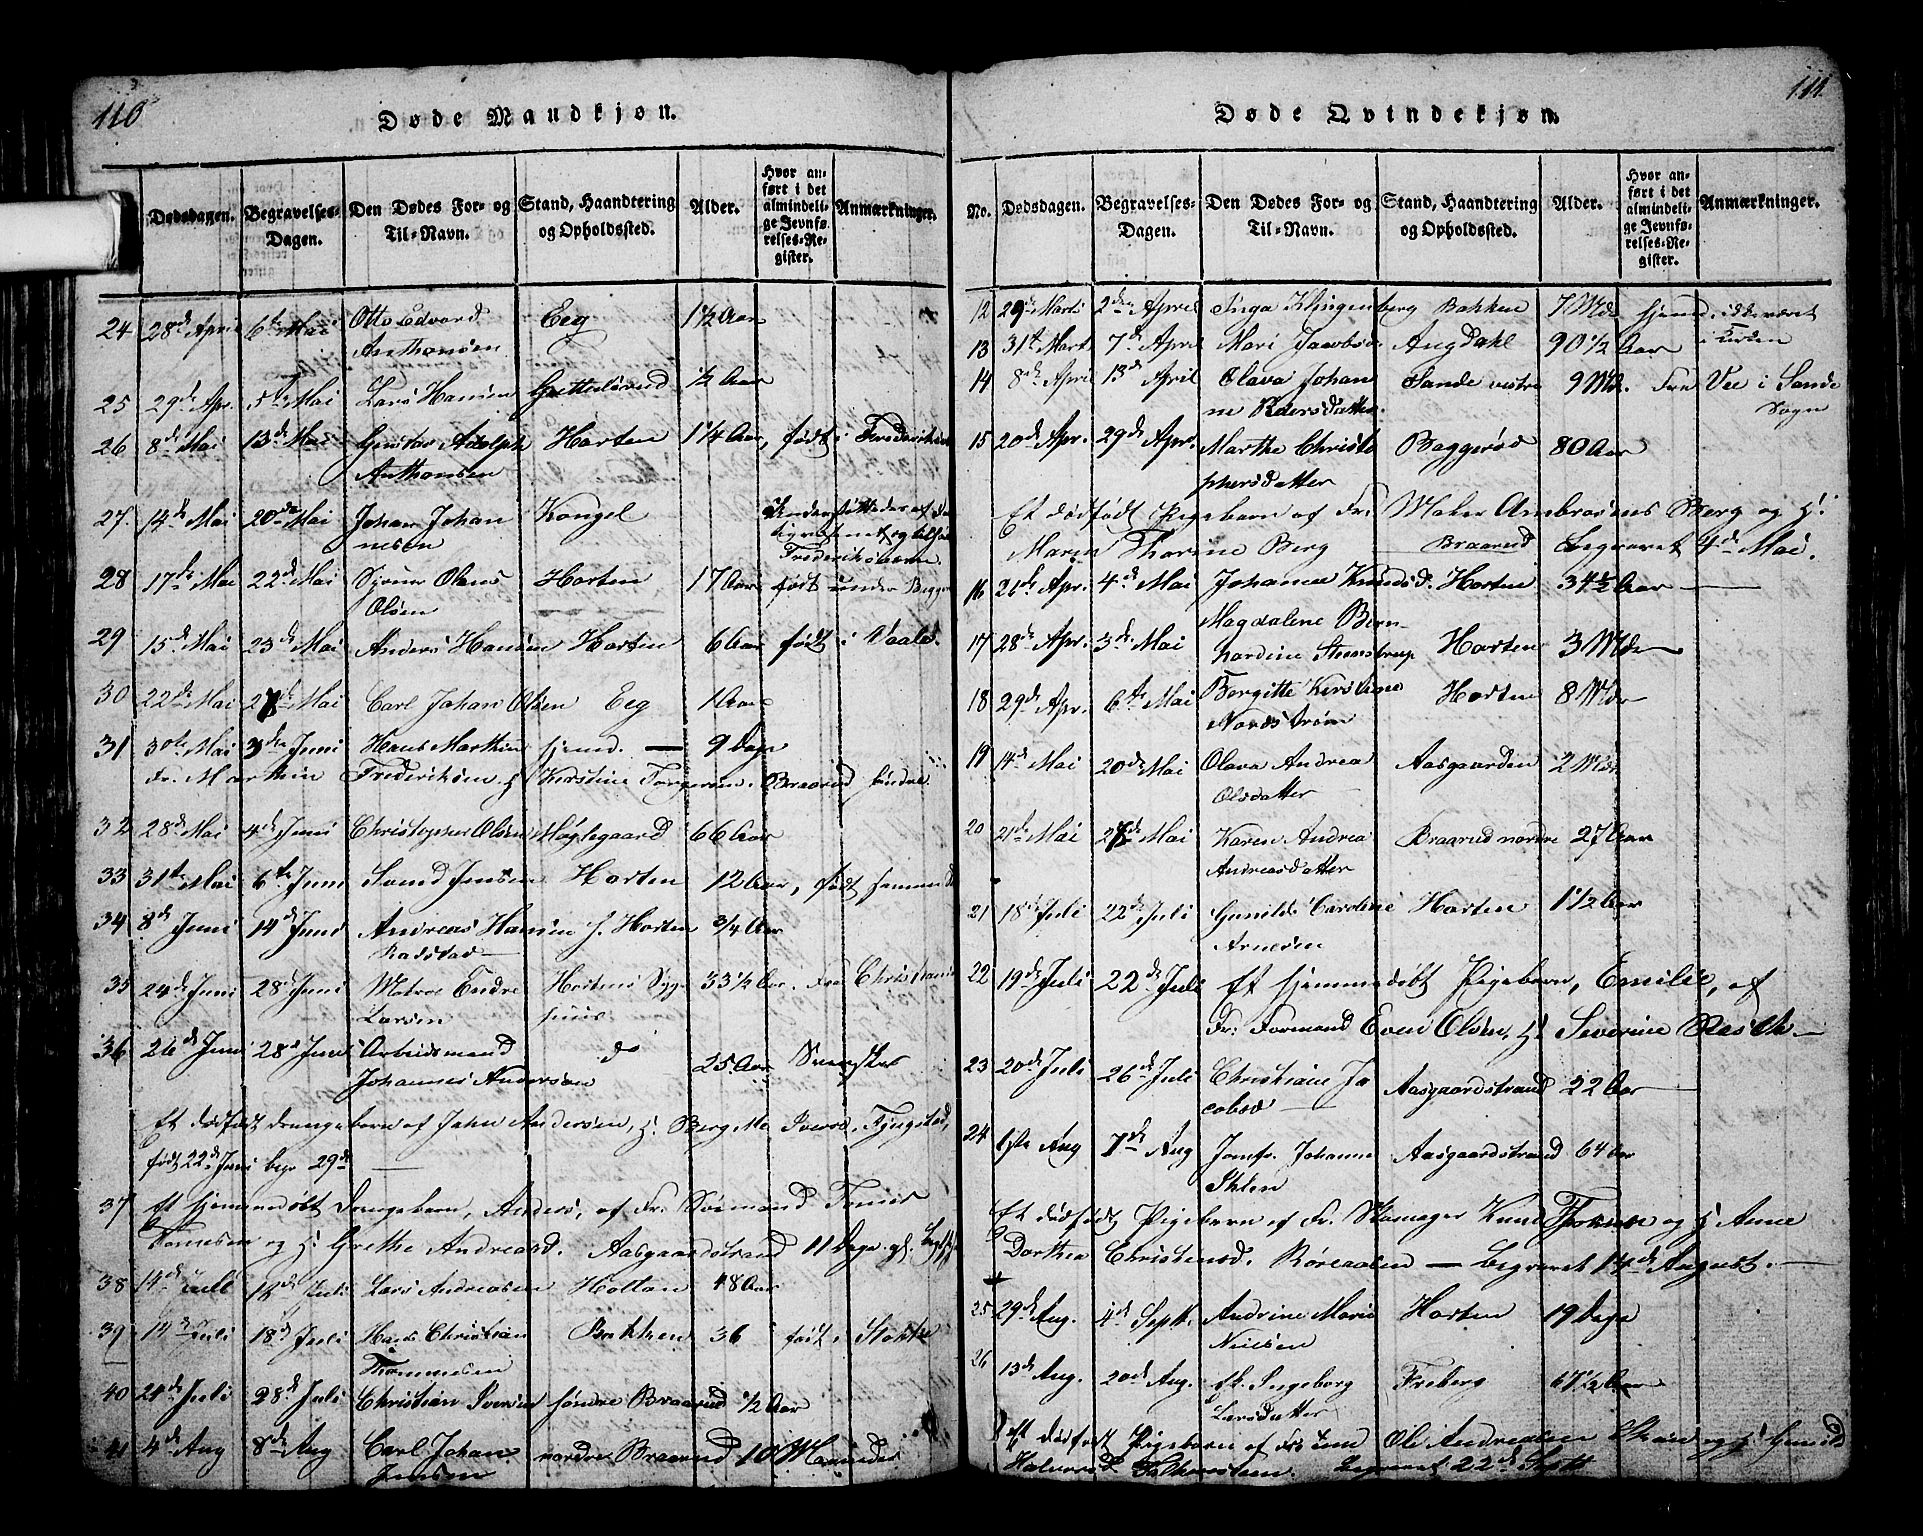 110
Døde Mandkjøn.
Dødsdagen. Begravelses-Dagen. Den Dødes For- og Til-Navn. Stand, Haandtering og Opholdssted. Alder. Hvor anført i det almindelige Jevnførelses-Register. Anmærkninger.
24 28de April 6te Mai Otto Edvard Eeg 1½ Aar
Anthonsen
25 29de Apr. 5te Mai Lars Hansen ½ Aar
26 8de Mai 13de Mai Gustav Adolph Horten 1¼ Aar, født i Frederiksv
Anthonsen
27 14de Mai 20de Mai Johan Johan Kongel
nesen
Frederiksværn
28 17de Mai 22de Mai Olens Horten 17 Aar født under
Olsen
29 15de Mai 23de Mai Anders Hansen Horten 6 Aar født i Vaale
30 22de Mai 27de Mai Carl Johan Olsen Eeg 1 Aar
31 30te Mai 3die Juni Hans Marthin hjemd. — 9 Dage
Fr. Marthin Frederiksen, H. Kirstine Torgersen. Braarud søndre
32 28de Mai 4de Juni Christopher Olsen Møglegaard 66 Aar
33 31te Mai 6te Juni Svend Jensen Horten 12 Aar, født sammesteds
34 8de Juni 14de Juni Andreas Hansen Horten ¾ Aar
Radstad
35 24de Juni 28de Juni Matros Endre Hortens Syg- 33½ Aar. Fra Christiania
Larsen huus
36 26de Juni 28de Juni Arbeidsmand do 25 Aar Svensker
Johannes Andersen
Et dødfødt Drengebarn af John Andersen, H. Berg Me Ivers. Fyugstad,
født 22de Juni begr 29de —
37 Et hjemmedøbt Drengebarn, Anders, af Fr. Sømand Tønnes
Tønnesen og H. Grethe Andreasd. Aasgaardstrand 11 Dage gl.
38 14de Juli 18de Juli Lars Andreasen Holtan 48 Aar
39 14de Juli 18de Juli Hans Christian Bakken 36 født i Stokke
Thommesen
40 21de Juli 28de Juli Christian Iversen søndre Braarud ½ Aar
41 4de Aug 8de Aug Carl Johan nordre Braarud 10 Maaneder
Jensen
111.
Døde Qvindekjøn.
No. Dødsdagen. Begravelses-Dagen. Den Dødes For- og Til-Navn. Stand, Haandtering og Opholdssted. Alder. Hvor anført i det almindelige Jevnførelses-Register. Anmærkninger.
12 29de Marts 2den April Inga Klingenberg Bakken 7 Mdr hjemd., ikke været
i Kirken
13 31te Mart 7de April Mari Jacobsd Angdahl 90½ Aar
14 8de April 13de April Olava Johan Sande vestre 9 Md. Fra Vee i Sande
ne Peersdatter Sogn
15 20de Apr. 29de Apr. Marthe Christo Baggerød 80 Aar
phersdatter
Et dødfødt Pigebarn af Fr. Maler Ambrosius Berg og H.
Maren Thorine Berg — Braarud begravet 4de Mai.
16 26de Apr. 4de Mai Johanne Knudsd. Horten 34½ Aar —
17 28de Apr. 3die Mai Magdalene Bern- Horten 3 Mdr
hardine Steenstrup
18 29de Apr. 6te Mai Bergitte Kirstine Horten 8 Mdr
Nordstrøm
19 14de Mai 20de Mai Olava Andrea Aasgaarden 2 Mdr
Olsdatter
20 21de Mai 27de Mai Karen Andrea Braarud nordre 27 Aar
Andreasdatter
21 18de Juli 22de Juli Gunild Caroline Horten 1½ Aar
Arnesen
22 19de Juli 22de Juli Et hjemmedøbt Pigebarn, Emilie, af
Fr. Formand Even Olsen, H. Severine Rasch —
23 20de Juli 26de Juli Christiane Ja Aasgaardstrand 22 Aar
cobsd —
24 1ste Aug 7de Aug Jomfr. Johanne Aasgaardstrand 64 Aar
Ihlen
Et dødfødt Pigebarn af Fr. Skomager Knud og H. Anne
Dorthea Christensd. Røreaasen — begravet 14de August. —
25 29de Aug. 4de Sept. Andrine Marie Horten 19 Dage
Nielsen
26 13de Aug. 20de Aug. Ingeborg Freberg 67½ Aar
Larsdatter
Et dødfødt Pigebarn af Ole Andreasen og H. Gunild
Halvorsd. Falkensteen. begravet 22de Sept